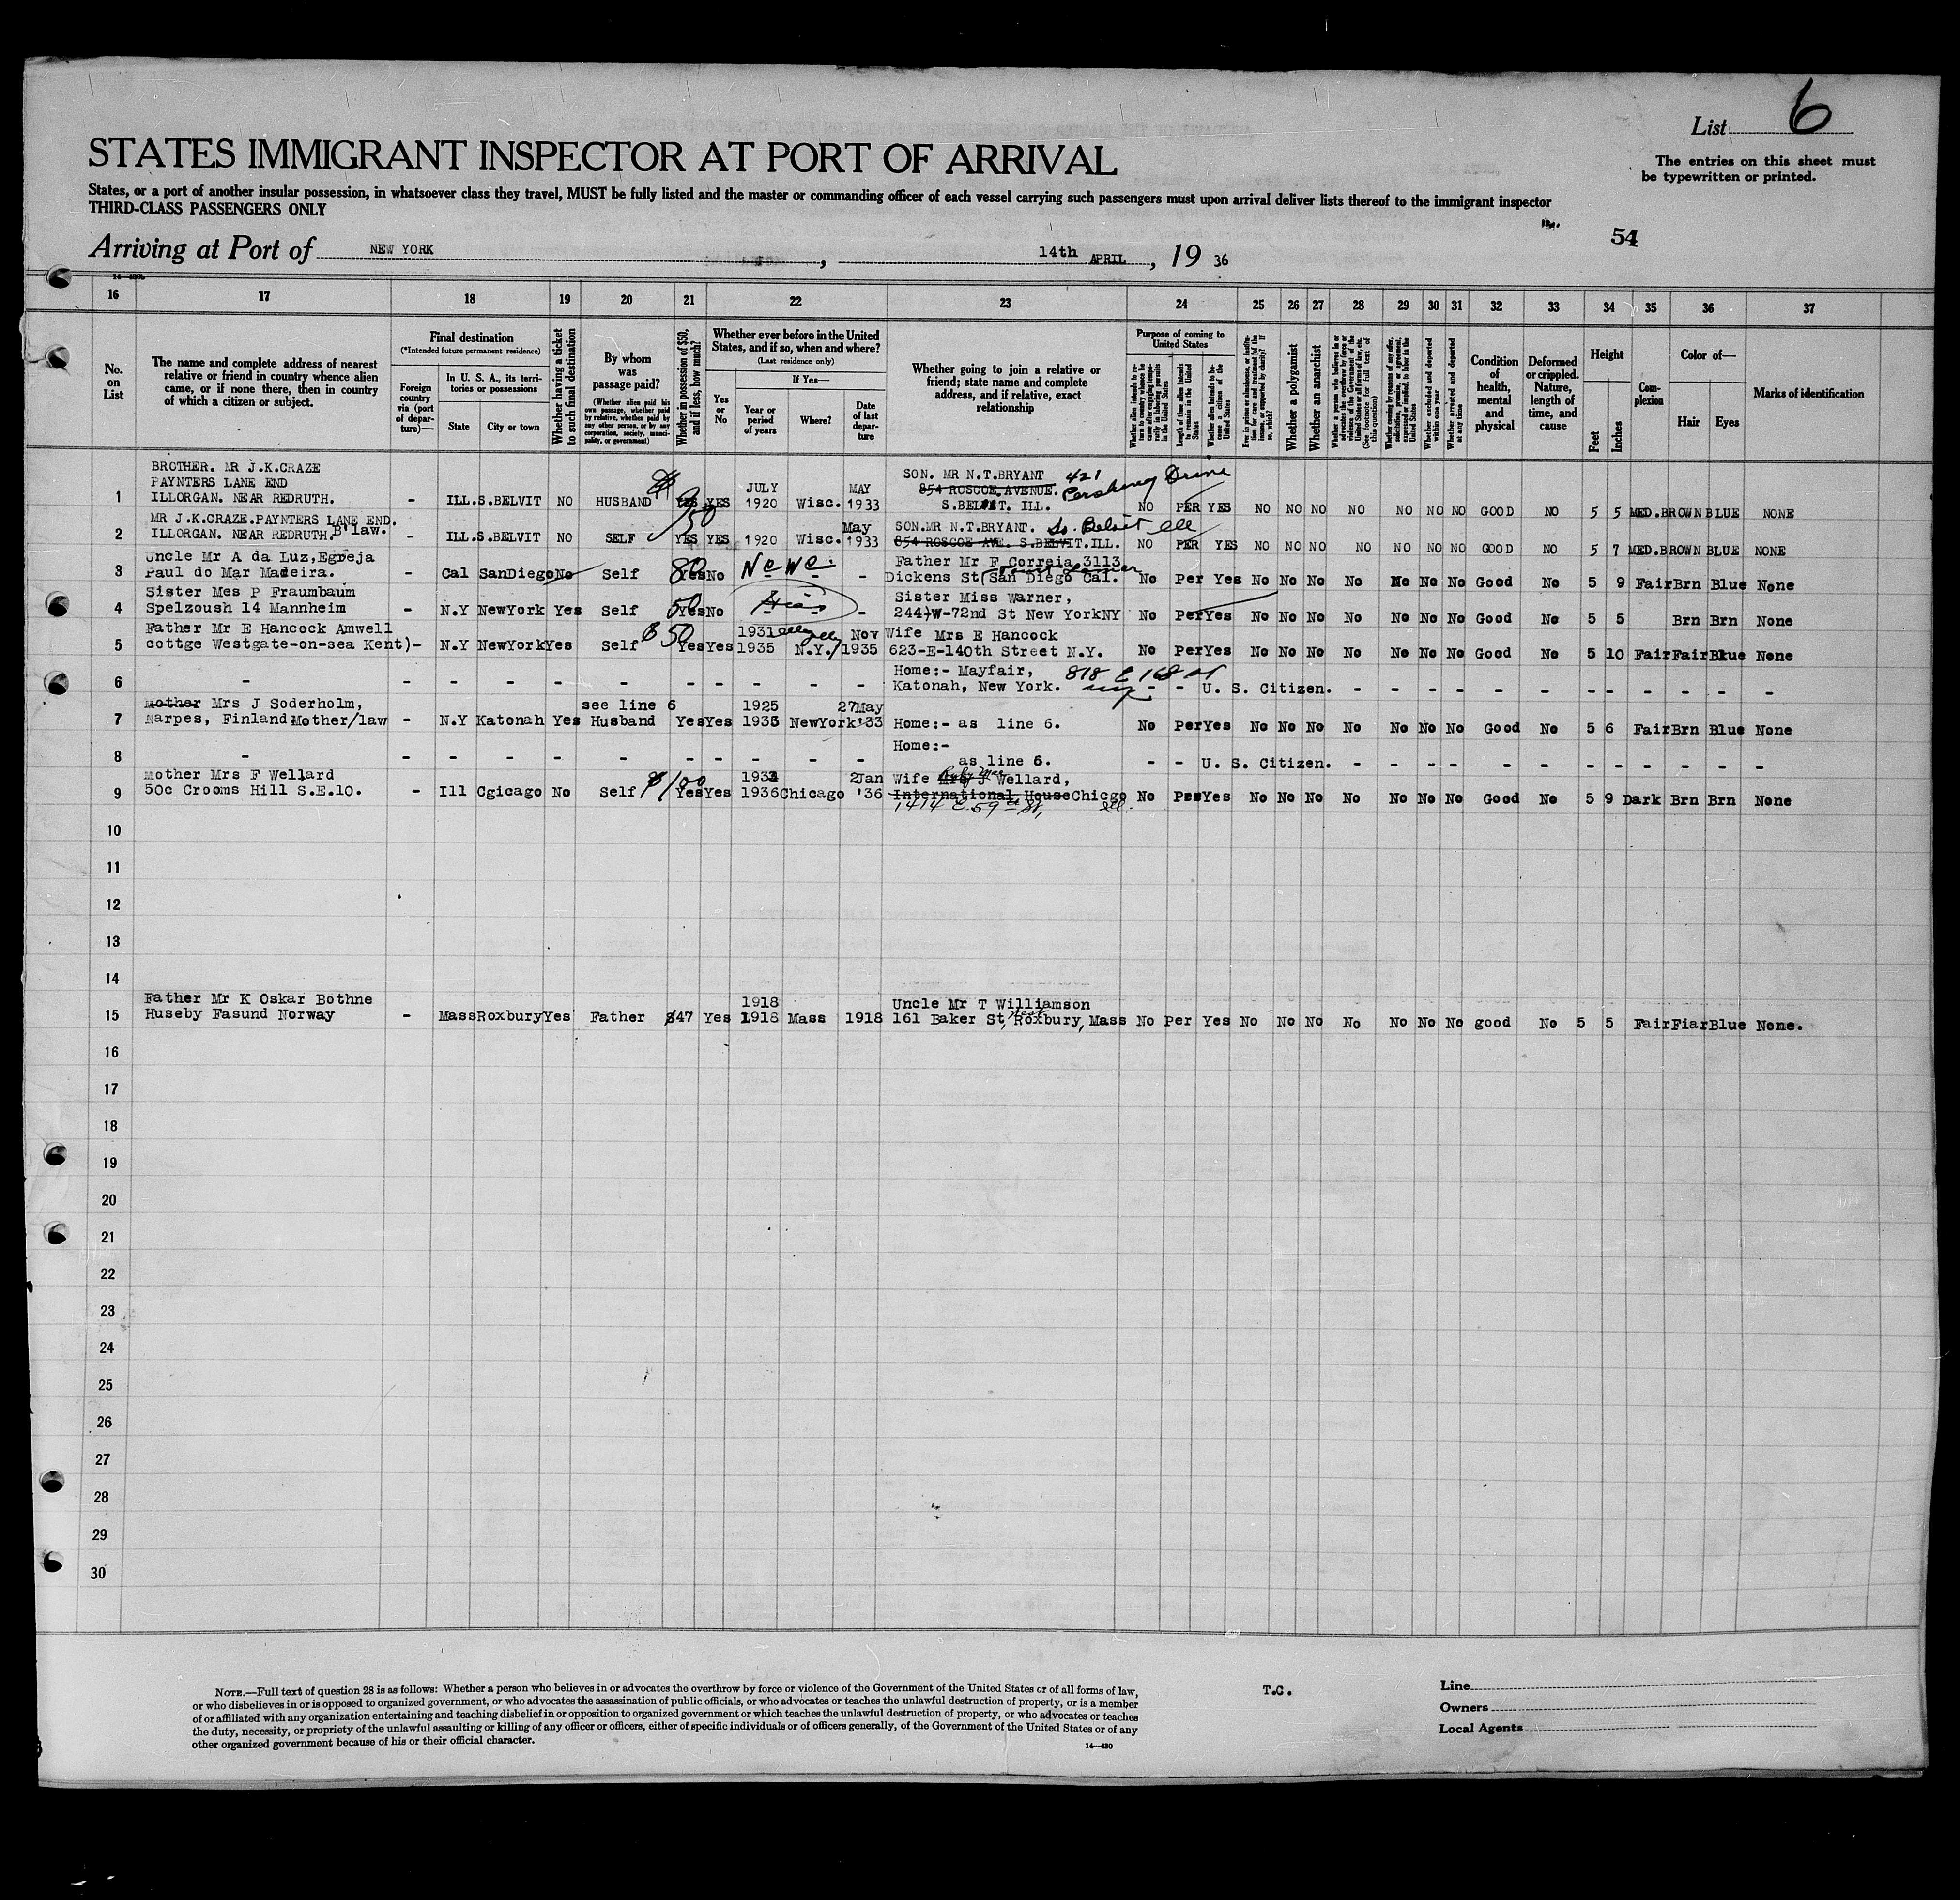 List 6
STATES IMMIGRANT INSPECTOR AT PORT OF ARRIVAL
The entries on this sheet must
be typewritten or printed.
States, or a port of another insular possession, in whatsoever class they travel, MUST be fully listed and the master or commanding officer of each vessel carrying such passengers must upon arrival deliver lists thereof to the immigrant inspector
THIRD-CLASS PASSENGERS ONLY
54
Arriving at Port of NEW YORK, 14th APRIL, 19 36
16 17 18 19 20 21 22 23 24 25 26 27 28 29 30 31 32 33 34 35 36 37
No. on List
The name and complete address of nearest
relative or friend in country whence alien
came, or if none there, then in country
of which a citizen or subject.
Final destination
(*Intended future permanent residence)
Foreign country via (port of departure)—
In U. S. A., its territories or possessions
State
City or town
Whether having a ticket to such final destination
By whom was passage paid?
(Whether alien paid his own passage, whether paid by relative, whether paid by any other person, or by any corporation, society, municipality, or government)
Whether in possession of $50, and if less, how much?
Whether ever before in the United States, and if so, when and where?
(Last residence only)
Yes or No
If Yes—
Year or period of years
Where?
Date of last departure
Whether going to join a relative or
friend; state name and complete
address, and if relative, exact
relationship
Purpose of coming to United States
Whether alien intends to return to country whence he came after engaging temporarily in laboring pursuits in the United States
Length of time alien intends to remain in the United States
Whether alien intends to become a citizen of the United States
Ever in prison or almshouse, or institution for care and treatment of the insane, or supported by charity? If so, which?
Whether a polygamist
Whether an anarchist
Whether excluded and deported within one year
Whether arrested and deported at any time
Condition of health, mental and physical
Deformed or crippled. Nature, length of time, and cause
Height
Feet
Inches
Complexion
Color of—
Hair
Eyes
Marks of identification
BROTHER. MR J.K.CRAZE SON. MR N.T.BRYANT 421
PAYNTERS LANE END JULY MAY 854 ROSCOE AVENUE. Pershing Drive
1 ILLORGAN. NEAR REDRUTH. - ILL. S.BELVIT NO HUSBAND YES YES 1920 Wisc. 1933 S.BELVIT. ILL. NO PER YES NO NO NO NO NO NO NO GOOD NO 5 5 MED. BROWN BLUE NONE
MR J.K.CRAZE.PAYNTERS LANE END. $150 May SON.MR N.T.BRYANT. So. Beloit Ill
2 ILLORGAN. NEAR REDRUTH. B'law. - ILL. S.BELVIT NO SELF YES YES 1920 Wisc. 1933 854 ROSCOE AVE. S.BELVIT.ILL. NO PER YES NO NO NO NO NO NO NO GOOD NO 5 7 MED. BROWN BLUE NONE
Uncle Mr A da Luz,Egreja Father Mr F Correia 3113
3 Paul do Mar Madeira. - Cal SanDiego No Self 80 Yes No - - - Dickens St San Diego Cal. No Per Yes No No No No No No No Good No 5 9 Fair Brn Blue None
Sister Mes P Fraumbaum Sister Miss Warner,
4 Spelzoush 14 Mannheim - N.Y NewYork Yes Self 50 Yes No Hias - 244 W-72nd St New YorkNY No Per Yes No No No No No No No Good No 5 5 Brn Brn None
Father Mr E Hancock Amwell $50 1931 Nov Wife Mrs E Hancock
5 cottge Westgate-on-sea Kent) - N.Y NewYork Yes Self Yes Yes 1935 N.Y. 1935 623-E-140th Street N.Y. No Per Yes No No No No No No No Good No 5 10 Fair Fair Blue None
Home:- Mayfair, 818 E 168 St
6 - - - - - - - - - - - Katonah, New York. - - U. S. Citizen. - - - - - - - - - - - - - -
mother Mrs J Soderholm, see line 6 1925 27May
7 Narpes, Finland. Mother/law - N.Y Katonah Yes Husband Yes Yes 1935 NewYork '33 Home:- as line 6. No Per Yes No No No No No No No Good No 5 6 Fair Brn Blue None
Home:-
8 - - - - - - - - - - - as line 6. - - U. S. Citizen. - - - - - - - - - - - - - -
Mother Mrs F Wellard $100 1934 2Jan Wife Mrs J Wellard,
9 50c Crooms Hill S.E.10. - Ill Cgicago No Self Yes Yes 1936 Chicago '36 International House Chicgo No Per Yes No No No No No No No Good No 5 9 Dark Brn Brn None
1414 E 59th St, Ill.
10
11
12
13
14
Father Mr K Oskar Bothne 1918 Uncle Mr T Williamson
15 Huseby Fasund Norway - Mass Roxbury Yes Father $47 Yes 1918 Mass 1918 161 Baker St, West Roxbury, Mass No Per Yes No No No No No No No good No 5 5 Fair Fiar Blue None.
16
17
18
19
20
21
22
23
24
25
26
27
28
29
30
NOTE.—Full text of question 28 is as follows: Whether a person who believes in or advocates the overthrow by force or violence of the Government of the United States or of all forms of law,
or who disbelieves in or is opposed to organized government, or who advocates the assassination of public officials, or who advocates or teaches the unlawful destruction of property, or is a member
of or affiliated with any organization entertaining and teaching disbelief in or opposition to organized government or which teaches the unlawful destruction of property, or who advocates or teaches
the duty, necessity, or propriety of the unlawful assaulting or killing of any officer or officers, either of specific individuals or of officers generally, of the Government of the United States or of any
other organized government because of his or their official character.
14—430
T.C.
Line
Owners
Local Agents